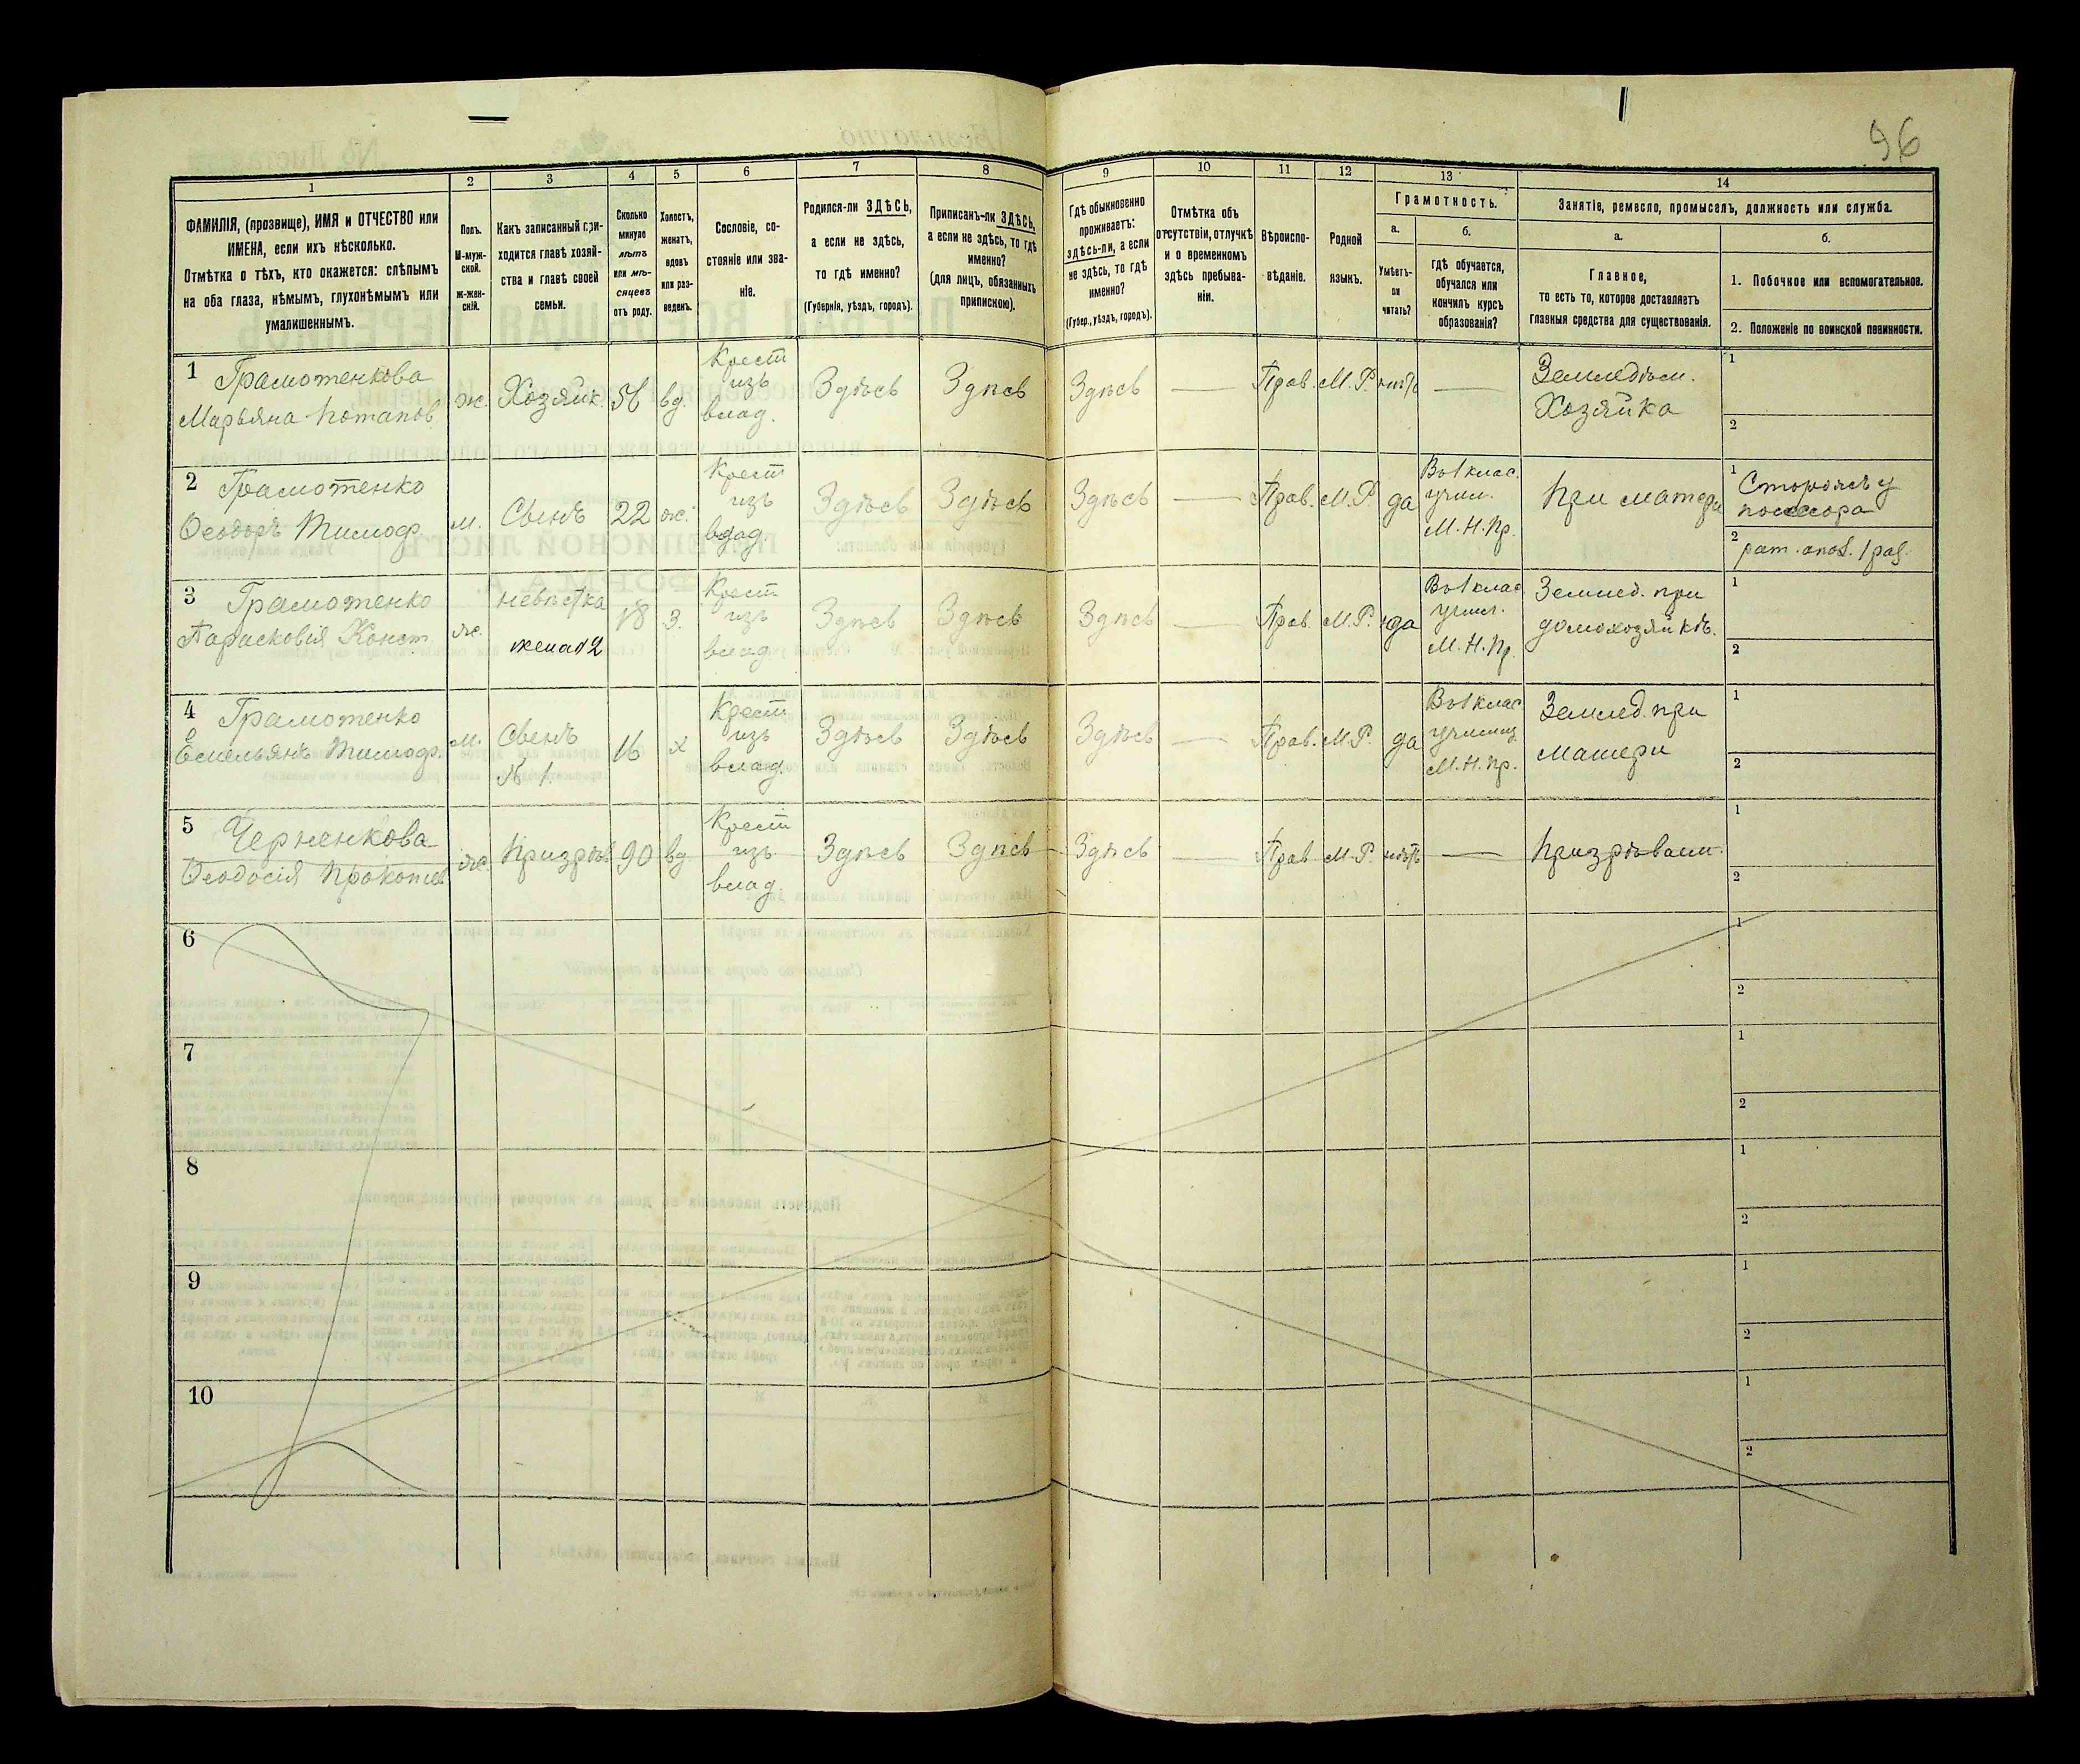 96
1
2
3
4
5
6
7
8
9
10
11
12
13
14
ФАМИЛІЯ, (прозвище), ИМЯ и ОТЧЕСТВО или
ИМЕНА, если ихъ нѣсколько.
Отмѣтка о тѣхъ, кто окажется: слѣпымъ
на оба глаза, нѣмымъ, глухонѣмымъ или
умалишеннымъ.
Полъ.
М-муж-
ской.
Ж-жен-
скій.
Какъ записанный при-
ходится главѣ хозяй-
ства и главѣ своей
семьи.
Сколько
минуло
лѣтъ
или мѣ-
сяцевъ
отъ роду.
Холостъ,
женатъ,
вдовъ
или раз-
веденъ.
Сословіе, со-
стояніе или зва-
ніе.
Родился-ли ЗДѢСЬ,
а если не здѣсь,
то гдѣ именно?
(Губернія, уѣздъ, городъ).
Приписанъ-ли ЗДѢСЬ,
а если не здѣсь, то гдѣ
именно?
(для лицъ, обязанныхъ
припискою).
Гдѣ обыкновенно
проживаетъ:
здѣсь-ли, а если
не здѣсь, то гдѣ
именно?
(Губер., уѣздъ, городъ).
Отмѣтка объ
отсутствіи, отлучкѣ
и о временномъ
здѣсь пребыва-
ніи.
Вѣроиспо-
вѣданіе.
Родной
языкъ.
Грамотность.
а.
Умѣетъ-
ли
читать?
б.
гдѣ обучается,
обучался или
кончилъ курсъ
образованія?
Занятіе, ремесло, промыселъ, должность или служба.
а.
Главное,
то есть то, которое доставляетъ
главныя средства для существованія.
б.
1. Побочное или вспомогательное.
2. Положеніе по воинской повинности.
1 Грамотенкова
Марьяна Потапов.
ж.
Хозяйк.
56
вд.
Крест
изъ
влад.
Здѣсь
Здѣсь
Здѣсь
Прав.
М. Р.
нѣтъ
Земледѣл.
Хозяйка
1
2
2 Грамотенко
Ѳеодоръ Тимоф.
м.
Сынъ
22
ж.
Крест
изъ
влад.
Здѣсь
Здѣсь
Здѣсь
Прав.
М. Р.
да
Въ 1 клас.
учил.
М. Н. Пр.
При матери
1 Сторожъ у
поссесора
2 рат. опол. 1 раз.
3 Грамотенко
Парасковія Конст.
ж.
невѣстка
жена №2
18
З.
Крест
изъ
влад.
Здѣсь
Здѣсь
Здѣсь
Прав.
М. Р.
да
Въ 1 клас
учил.
М. Н. Пр.
Землед. при
домохозяйкѣ.
1
2
4 Грамотенко
Емельянъ Тимоф.
м.
Сынъ
№ 1.
16
х
Крест
изъ
влад.
Здѣсь
Здѣсь
Здѣсь
Прав.
М. Р.
да
Въ 1 клас
училищ
М. Н. Пр.
Землед. при
матери
1
2
5 Черненкова
Ѳеодосія Прокопіев.
ж.
Призрѣв
90
вд
Крест
изъ
влад.
Здѣсь
Здѣсь
Здѣсь
Прав
М. Р.
нѣтъ
Призрѣваем.
1
2
6
1
2
7
1
2
8
1
2
9
1
2
10
1
2